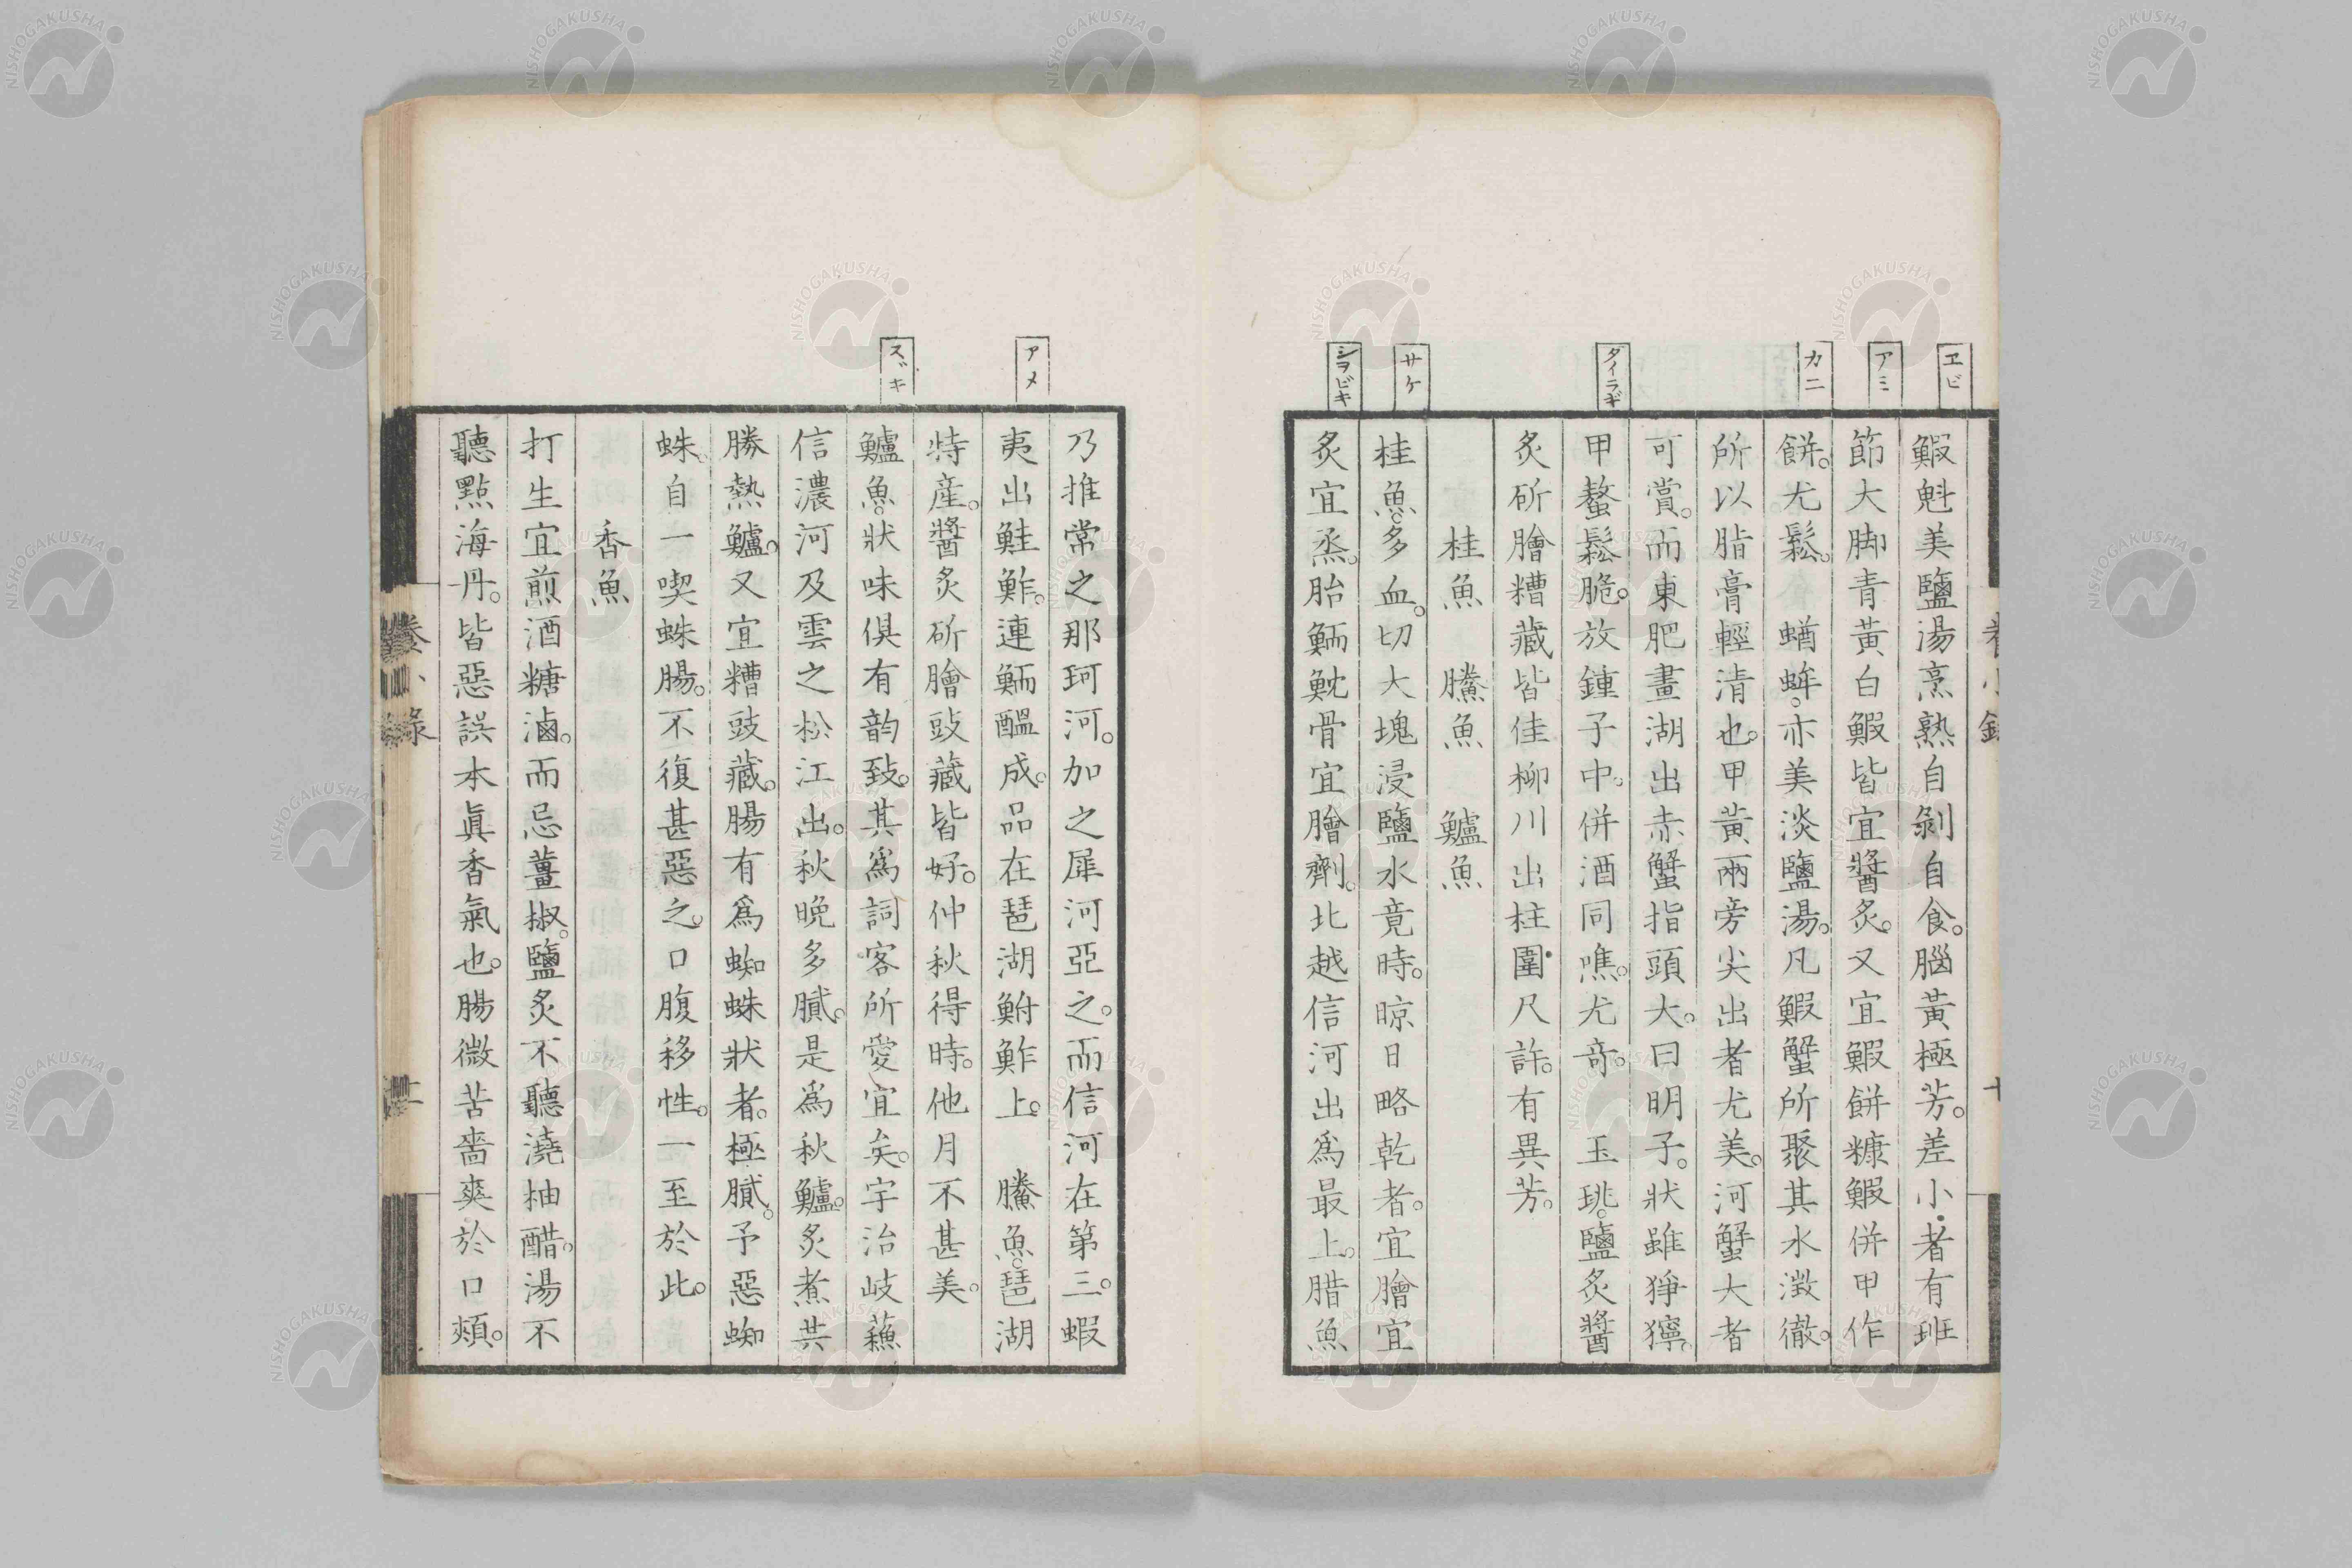 エビ
アミ
カニ
タイラギ
サケ
シヲビキ
鰕魁美鹽湯烹熟自剝自食。腦黃極芳。差小者有班
節大脚青黃白鰕皆宜醬炙。又宜鰕餅糠鰕併甲作
餅。尤鬆。　蝤蛑。亦美淡鹽湯。凡鰕蟹所聚其水澂徹。
所以脂膏輕清也。甲黃兩旁尖出者尤美。河蟹大者
可賞。而東肥畫湖出赤蟹指頭大。曰明子。狀雖猙獰。
甲螯鬆脆。放鍾子中。併酒同噍。尤奇。　玉珧。鹽炙醬
炙斫膾糟藏皆佳柳川出柱圍尺許。有異芳。
桂魚　鰧魚　鱸魚
桂魚。多血。切大塊浸鹽水竟時。晾日略乾者。宜膾宜
炙宜烝。胎鮞魫骨宜膾劑。北越信河出爲最上。腊魚
アメ
スヾキ
乃推常之那珂河。加之犀河亞之。而信河在第三。蝦
夷出鮭鮓。連鮞醞成。品在琶湖鮒鮓上。　鰧魚。琶湖
特産。醬炙斫膾豉藏皆好。仲秋得時。他月不甚美。
鱸魚。狀味俱有韵致。其爲詞客所愛宜矣。宇治岐蘓
信濃河及雲之松江出。秋晚多膩。是爲秋鱸。炙煮共
勝熱鱸。又宜糟豉藏。腸有爲蜘蛛狀者。極膩。予惡蜘
蛛。自一喫蛛腸。不復甚惡之。口腹移性。一至於此。
香魚
打生宜煎酒糖滷。而忌薑椒。鹽炙不聽澆柚醋。湯不
聽點海丹。皆惡誤本眞香氣也。腸微苦嗇爽於口頰。
NISHOGAKUSHA